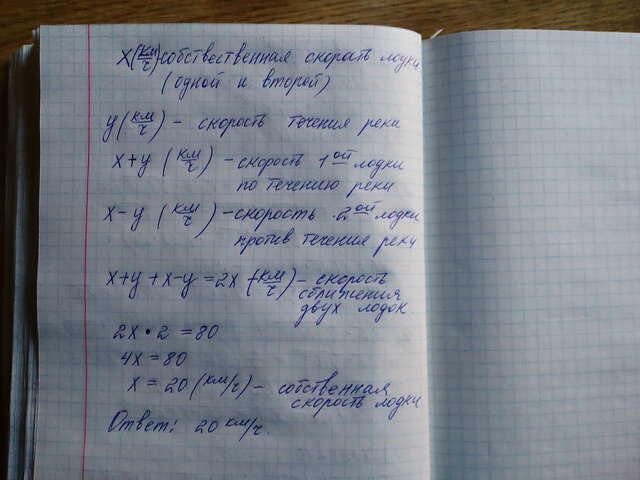 x (км/ч) собственная скорость лодки
(одной и второй)
y (км/ч) – скорость течения реки
x+y (км/ч) – скорость 1ой лодки
по течению реки
x–y (км/ч) – скорость 2ой лодки
против течения реки
x+y+x–y=2x (км/ч) – скорость
сближения
двух лодок
2x•2=80
4x=80
x=20 (км/ч) – собственная
скорость лодки
Ответ: 20 км/ч.